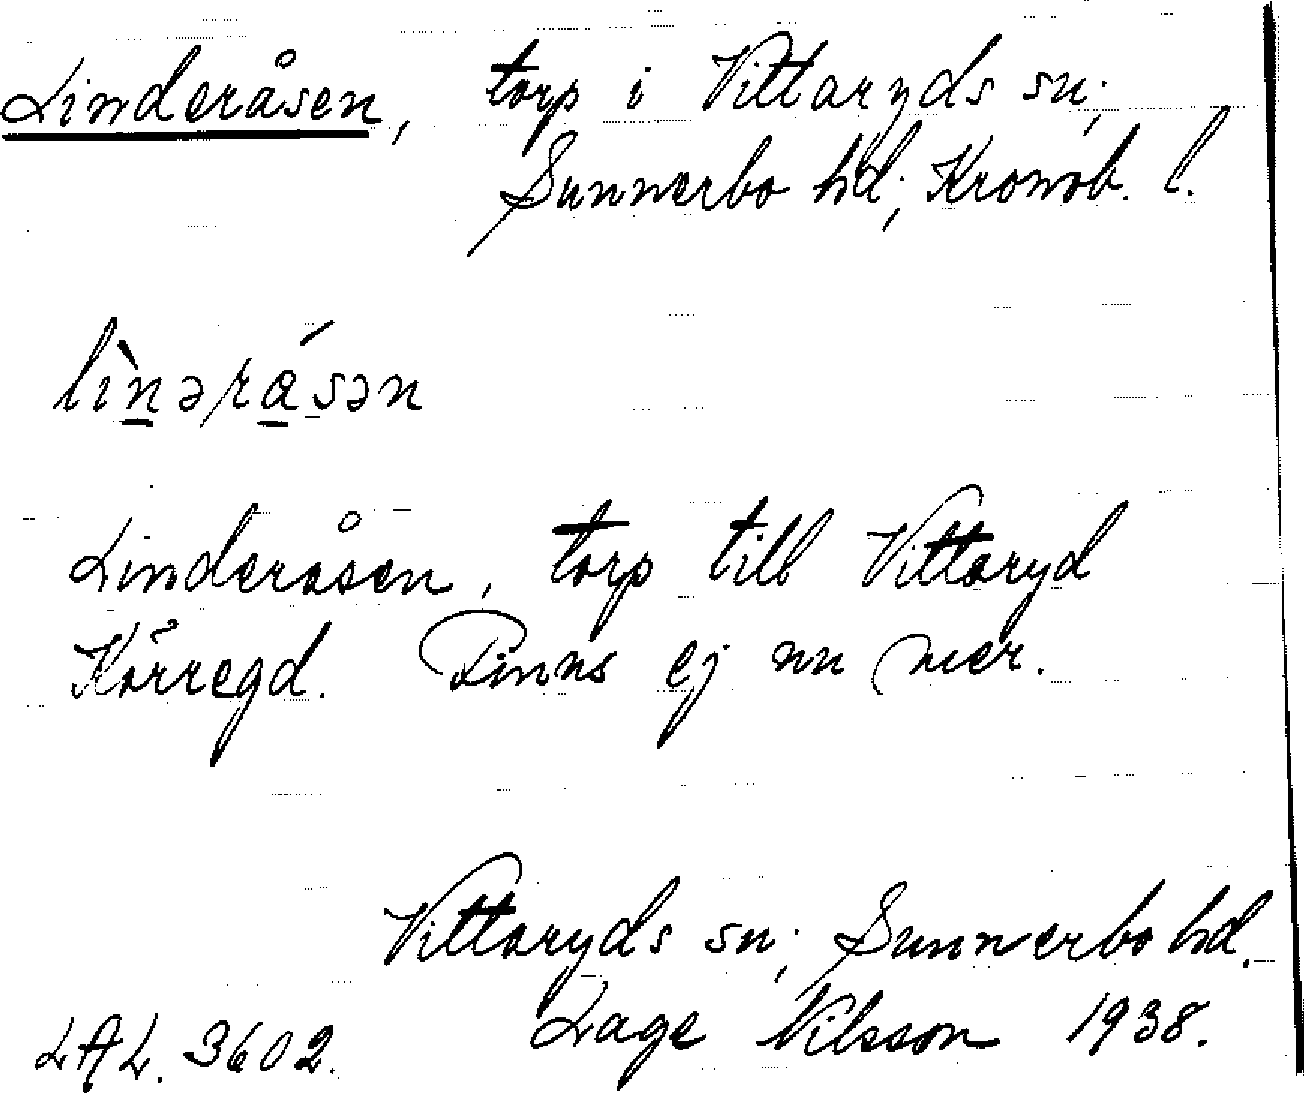 Linderåsen, torp i Vittaryds sn;
Sunnerbo hd; Kronob. l.
lìnəråsən
Linderåsen, torp till Vittaryd
Körregd. Finns ej nu mer.
Vittaryds sn; Sunnerbo hd.
LAL. 3602. Lage Nilsson 1938.